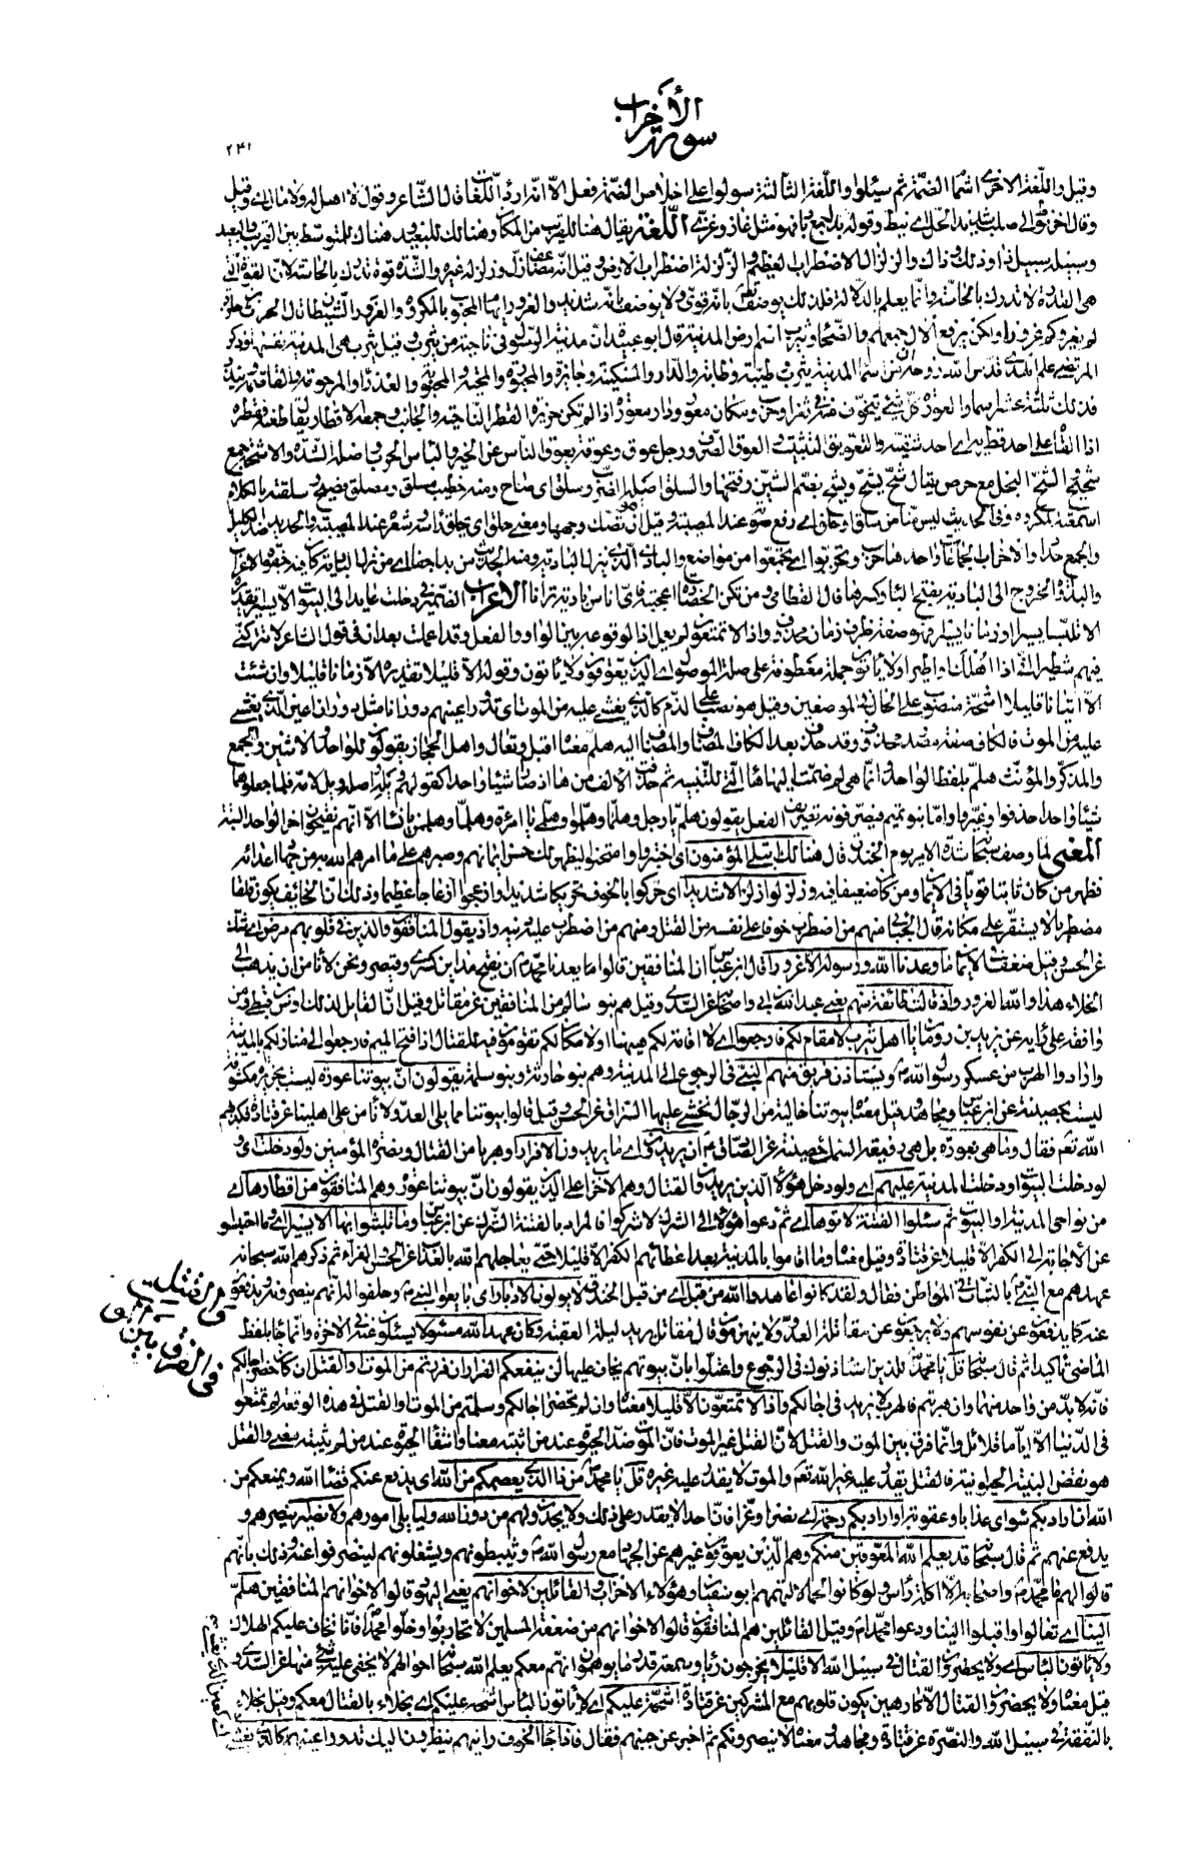 سورة الأحزاب
٢٤١
وقيل واللغة الاخرى اشما الضمة ثم سيئلوا واللغة الثالثة سولوا على اخلاص الضمة فعل الا انه اردأ اللغا قال الشاعر وقول لا اهل له ولا مال وقيل
وقال اخر نبط وقوله بدا لجمع با فهو مثل غاز وغزى اللغة يقال هنا للقريب من المكان وهنالك للبعيد وهناك للمتوسط بين القريب والبعيد
وسبيله سبيل ذا وذلك وذاك والزلزال الاضطراب العظيم والزلزلة اضطراب الارض وقيل انه مضاعف زل وزلزله غيره والشدة قوة تدرك بالحاسة لان القوة التي
هي القدرة لا تدرك بالحاسة وانما يعلم بالدلالة فلذلك يوصف تعالى بانه قوى ولا يوصف بانه شديد والغرور ايهام المحبوب بالمكروه والغرور الشيطان قال الحرث بن حلزة
لم يغروكم غرورا ولكن يرفع الال جمعهم والضحا ويثرب اسم ارض المدينة قال ابو عبيدة ان مدينة الرسول في ناحية من يثرب وقيل يثرب هي المدينة نفسها وذكر
المرتضى علم الهدى قدس الله روحه ان من اسما المدينة يثرب وطيبة وطابة والدار والسكينة وجابرة والمجبورة والمحبة والمحبوبة والعذرا والمرحومة والقاصمة ويندد
فذلك ثلثة عشر اسما والعورة كل شئ يتخوف منه في ثغر او حرب ومكان معور ودار معورة اذا لم تكن حريزة القطر الناحية والجانب وجمعه الاقطار يقال طعنه فقطره
اذا القاه على احد قطريه اى احد شقيه والتعويق التثبيت والعوق الصرف ورجل عوق وعوقة يعوق الناس عن الخير والبأس الحرب واصله الشدة والاشحة جمع
شحيح والشح البخل مع حرص يقال شح يشح ويشح بضم الشين وفتحها والسلق اصله الضرب وسلق اى صاح ومنه خطيب مسلق ومصلاق فصيح وسلقته بالكلام
اسمعته المكروه وفي الحديث ليس منا من سلق او حلق اى رفع صوته عند المصيبة وقيل ان تصك وجهها ومعنى حلق اى يحلق رأسه وشعره عند المصيبة والحديد ضد الكليل
والجمع حداد والاحزاب الجماعات واحدها حزب وتحزبوا اى تجمعوا من مواضع والبادى الذى ينزل البادية ومنه الحديث من بدا جفا اى من نزل البادية كان فيه جفوة الاعراب
والبداوة الخروج الى البادية بفتح البا وكسرها قال القطامى ومن تكن الحضارة اعجبته فاى اناس بادية ترانا الاعراب الضمير في دخلت عايد الى البيوت الا يسيرا تقديره
الا تلبثا يسيرا او زمانا يسيرا فهو صفة ظرف زمان محذوف واذا لا تمتعون لم يعمل اذا لوقوعه بين الواو والفعل وقد اعملت بعد ان في قول الشاعر لا تتركنى
فيهم شطيرا انى اذا اهلك او اطيرا ولا يأتون جملة معطوفة على صلة الموصول اى الذين يعوقون ولا يأتون وقوله الا قليلا تقديره الا زمانا قليلا وان شئت
الا اتيانا قليلا اشحة منصوب على الحال في الموضعين وقيل هو نصب على الذم كالذى يغشى عليه من الموت اى تدور اعينهم دورانا مثل دوران اعين الذى يغشى
عليه من الموت فالكاف صفة مصدر محذوف وقد حذف بعد الكاف المضاف والمضاف اليه هلم معناه اقبل وتعال واهل الحجاز يقولون للواحد والاثنين والجمع
والمذكر والمؤنث هلم بلفظ الواحد وانما هى لم ضمت اليها ها التى للتنبيه ثم حذفت الالف من ها اذ صارا شيئا واحدا كقولهم ويلمه واصله ويل لامه فلما جعلوهما
شيئا واحدا حذفوا وغيروا واما بنو تميم فيصرفونه تصريف الفعل يقولون هلم يا رجل وهلما وهلموا وهلمى يا امرأة وهلما وهلمن يا نساء الا انهم يفتحون اخر الواحد البتة
المعنى لما وصف سبحانه شدة الامر يوم الخندق قال هنالك ابتلى المؤمنون اى اختبروا وامتحنوا ليظهر لك حسن ايمانهم وصبرهم على ما امرهم الله به من جهاد اعدائه
فظهر من كان ثابتا قويا في الايمان ومن كان ضعيفا فيه وزلزلوا زلزالا شديدا اى حركوا بالخوف تحريكا شديدا وازعجوا ازعاجا عظيما وذلك ان الخائف يكون قلقا
مضطربا لا يستقر على مكانه قال الجبائى منهم من اضطرب خوفا على نفسه من القتل ومنهم من اضطرب عليه دينه واذ يقول المنافقون والذين في قلوبهم مرض اى شك
عن الحسن وقيل ضعف في الايمان ما وعدنا الله ورسوله الا غرورا قال ابن عباس ان المنافقين قالوا يعدنا محمد ان يفتح مداين كسرى وقيصر ونحن لا نأمن ان يذهب الى
الخلاء هذا والله الغرور واذ قالت طائفة منهم يعنى عبد الله بن ابى واصحابه عن السدى وقيل هم بنو سالم من المنافقين عن مقاتل وقيل ان القايل لذلك اوس بن قبطى ومن
وافقه على رأيه عن يزيد بن رومان يا اهل يثرب لا مقام لكم فارجعوا اى لا اقامة لكم ههنا او لا مكان لكم تقومون فيه للقتال اذا فتح الميم فارجعوا الى منازلكم بالمدينة
وارادوا الهرب من عسكر رسول الله ص ويستأذن فريق منهم النبى في الرجوع الى المدينة وهم بنو حارثة وبنو سلمة يقولون ان بيوتنا عورة ليست بحريزة مكشوفة
ليست بحصينة عن ابن عباس ومجاهد وقيل معناه بيوتنا خالية من الرجال نخشى عليها السراق عن الحسن وقيل قالوا بيوتنا مما يلى العدو ولا نأمن على اهلينا عن قتادة فكذبهم
الله تعالى فقال وما هى بعورة بل هى رفيعة السمك حصينة عن الصادق ع ان يريدون اى ما يريدون الا فرارا وهربا من القتال ونصرة المؤمنين ولو دخلت اى و
لو دخلت البيوت او دخلت المدينة عليهم اى ولو دخل هؤلاء الذين يريدون القتال وهم الاحزاب على الذين يقولون ان بيوتنا عورة وهم المنافقون من اقطارها اى
من نواحى المدينة او البيوت ثم سئلوا الفتنة لاتوها اى ثم دعوا هؤلاء الى الشرك لاشركوا فالمراد بالفتنة الشرك عن ابن عباس وما تلبثوا بها الا يسيرا اى وما احتبسوا
عن الاجابة الى الكفر الا قليلا عن قتادة وقيل معناه وما اقاموا بالمدينة بعد اعطائهم الكفر الا قليلا حتى يعاجلهم الله بالعذاب عن الحسن والفراء ثم ذكرهم الله سبحانه
عهدهم مع النبى ص بالثبات في المواطن فقال ولقد كانوا عاهدوا الله من قبل اى من قبل الخندق لا يولون الادبار اى بايعوا النبى ص وحلفوا له انهم ينصرونه ويدفعون
عنه كما يدفعون عن نفوسهم ولا يرجعون عن مقاتلة العدو ولا ينهزمون قال مقاتل يريد ليلة العقبة وكان عهد الله مسئولا يسئلون عنه في الاخرة وانما جاء بلفظ
الماضى تأكيدا ثم قال سبحانه قل يا محمد للذين استأذنوك في الرجوع واعتلوا بان بيوتهم يخاف عليها لن ينفعكم الفرار ان فررتم من الموت او القتل ان كان حضر اجالكم
فانه لا بد من واحد منهما وان هربتم فالهرب لا يزيد في اجالكم واذا لا تمتعون الا قليلا معناه وان لم يحضر اجالكم وسلمتم من الموت او القتل في هذه الوقعة لم تمتعوا
في الدنيا الا اياما قلائل وانما فرق بين الموت والقتل لان القتل غير الموت فان الموت ضد الحيوة عند من اثبته معنى وانتفاء الحيوة عند من لم يثبته معنى والقتل
هو نقض البنية الحيوانية فالقتل يقدر عليه غير الله تعالى والموت لا يقدر عليه غيره قل يا محمد من ذا الذى يعصمكم من الله اى يدفع عنكم قضاء الله ويمنعكم من
الله ان اراد بكم سوءا اى عذابا وعقوبة او اراد بكم رحمة اى نصرا وعزا فان احدا لا يقدر على ذلك ولا يجدون لهم من دون الله وليا يلى امورهم ولا نصيرا ينصرهم و
يدفع عنهم ثم قال سبحانه قد يعلم الله المعوقين منكم وهم الذين يعوقون غيرهم عن الجهاد مع رسول الله ص ويثبطونهم ويشغلونهم لينصرفوا عنه وذلك بانهم
قالوا لهم ما محمد ص واصحابه الا اكلة رأس ولو كانوا لحما لالتهمهم ابو سفيان وهؤلاء الاحزاب والقائلين لاخوانهم يعنى اليهود قالوا لاخوانهم المنافقين هلم
الينا اى تعالوا واقبلوا الينا ودعوا محمدا ص وقيل القائلين هم المنافقون قالوا لاخوانهم من ضعفة المسلمين لا تحاربوا وخلوا محمدا فانا نخاف عليكم الهلاك
ولا يأتون البأس اى ولا يحضرون القتال في سبيل الله الا قليلا يخرجون رياء وسمعة قدر ما يوهمون انهم معكم يعلم الله سبحانه احوالهم لا يخفى عليه شئ منها عن السدى و
قيل معناه ولا يحضرون القتال الا كارهين يكون قلوبهم مع المشركين عن قتادة اشحة عليكم اى لا يأتون البأس اشحة عليكم اى بخلاء بالقتال معكم وقيل بخلاء
بالنفقة في سبيل الله والنصرة عن قتادة ومجاهد معناه لا ينصرونكم ثم اخبر عن جبنهم فقال فاذا جاء الخوف رأيتهم ينظرون اليك تدور اعينهم كالذى يغشى
في الفرق بين